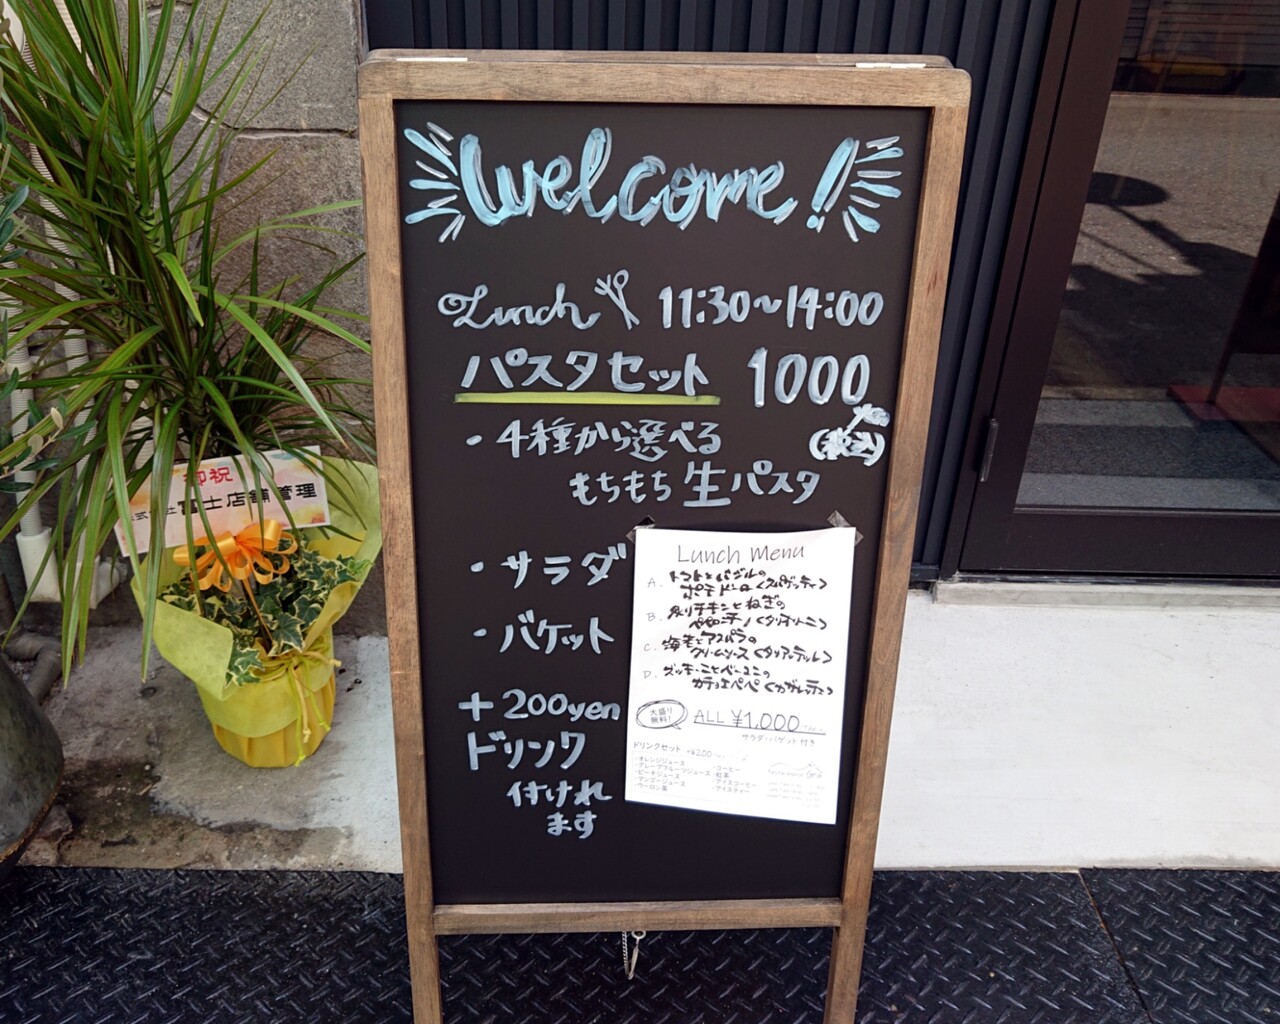 Welcome!
Lunch 11:30~14:00
パスタセット 1000
(税込)
・4種から選べる
もちもち生パスタ
・サラダ
・バケット
+200yen
ドリンク
付けれ
ます
Lunch Menu
A. トマトとバジルの
ポモドーロ<スパゲッティ>
B. 炙りチキンとねぎの
C. 海老とアスパラの
クリームソース<タリアテッレ>
D. ズッキーニとベーコンの
カチョエペペ
大盛り
無料!
ALL ¥1,000
サラダ・バゲット付き
ドリンクセット +¥200
・オレンジジュース
・グレープフルーツジュース
・ピーチジュース
・マンゴージュース
・ウーロン茶
・コーヒー
・紅茶
・アイスコーヒー
・アイスティー
御祝
富士店舗管理